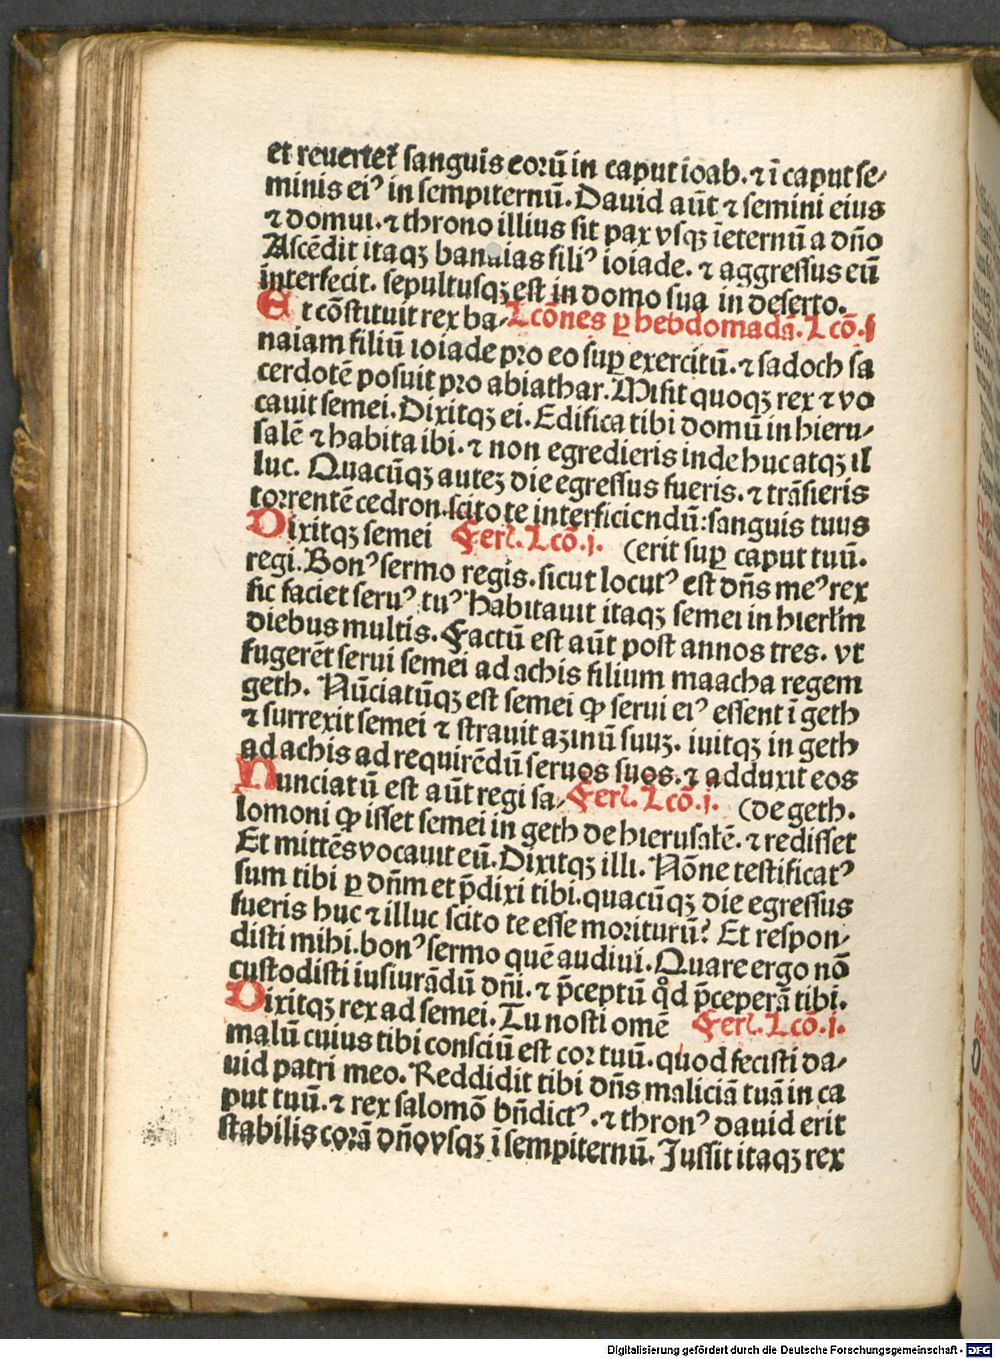 et reuertet᷑ sanguis eorū in caput ioab. ⁊ ī caput se⸗
minis ei⁹ in sempiternū. Dauid aūt ⁊ semini eius
⁊ domui. ⁊ throno illius sit pax vsqꝫ ieternū a dño
Ascēdit itaqꝫ banaias fili⁹ ioiade. ⁊ aggressus eū
interfecit. sepultusqꝫ est in domo sua in deserto.
Et cōstituit rex ba⸗ Lcōnes ꝑ hebdomadā. Lcō. j
naiam filiū ioiade pro eo suꝑ exercitū. ⁊ sadoch sa
cerdotē posuit pro abiathar. Misit quoqꝫ rex ⁊ vo
cauit semei. Dixitqꝫ ei. Edifica tibi domū in hieru⸗
salē ⁊ habita ibi. ⁊ non egredieris inde huc atqꝫ il
luc. Quacūqꝫ auteꝫ die egressus fueris. ⁊ trāsieris
torrentē cedron. scito te interficiendū: sanguis tuus
Dixitqꝫ semei Ferꝭ. Lcō. j. (erit suꝑ caput tuū.
regi. Bon⁹ sermo regis. sicut locut⁹ est dñs me⁹ rex
sic faciet seru⁹ tu⁹ Habitauit itaqꝫ semei in hierłm
diebus multis. Factū est aūt post annos tres. vt
fugerēt serui semei ad achis filium maacha regem
geth. Nūciatūqꝫ est semei ꝙ serui ei⁹ essent ī geth
⁊ surrexit semei ⁊ strauit azinū suuꝫ. iuitqꝫ in geth
ad achis ad requirēdū seruos suos. ⁊ adduxit eos
Nunciatū est aūt regi sa⸗ Ferꝭ. Lcō. j. (de geth.
lomoni ꝙ isset semei in geth de hierusalē. ⁊ redisset
Et mittēs vocauit eū. Dixitqꝫ illi. Nōne testificat⁹
sum tibi ꝑ dñm et p̄dixi tibi. quacūqꝫ die egressus
fueris huc ⁊ illuc scito te esse moriturū? Et respon⸗
disti mihi. bon⁹ sermo quē audiui. Quare ergo nō
custodisti iusiurādū dñi. ⁊ p̄ceptū qđ p̄ceperā tibi.
Dixitqꝫ rex ad semei. Tu nosti omē Ferꝭ. Lcō. j.
malū cuius tibi consciū est cor tuū. quod fecisti da⸗
uid patri meo. Reddidit tibi dñs maliciā tuā in ca
put tuū. ⁊ rex salomō bñdict⁹. ⁊ thron⁹ dauid erit
stabilis corā dño vsqꝫ ī sempiternū. Jussit itaqꝫ rex
Digitalisierung gefördert durch die Deutsche Forschungsgemeinschaft - DFG